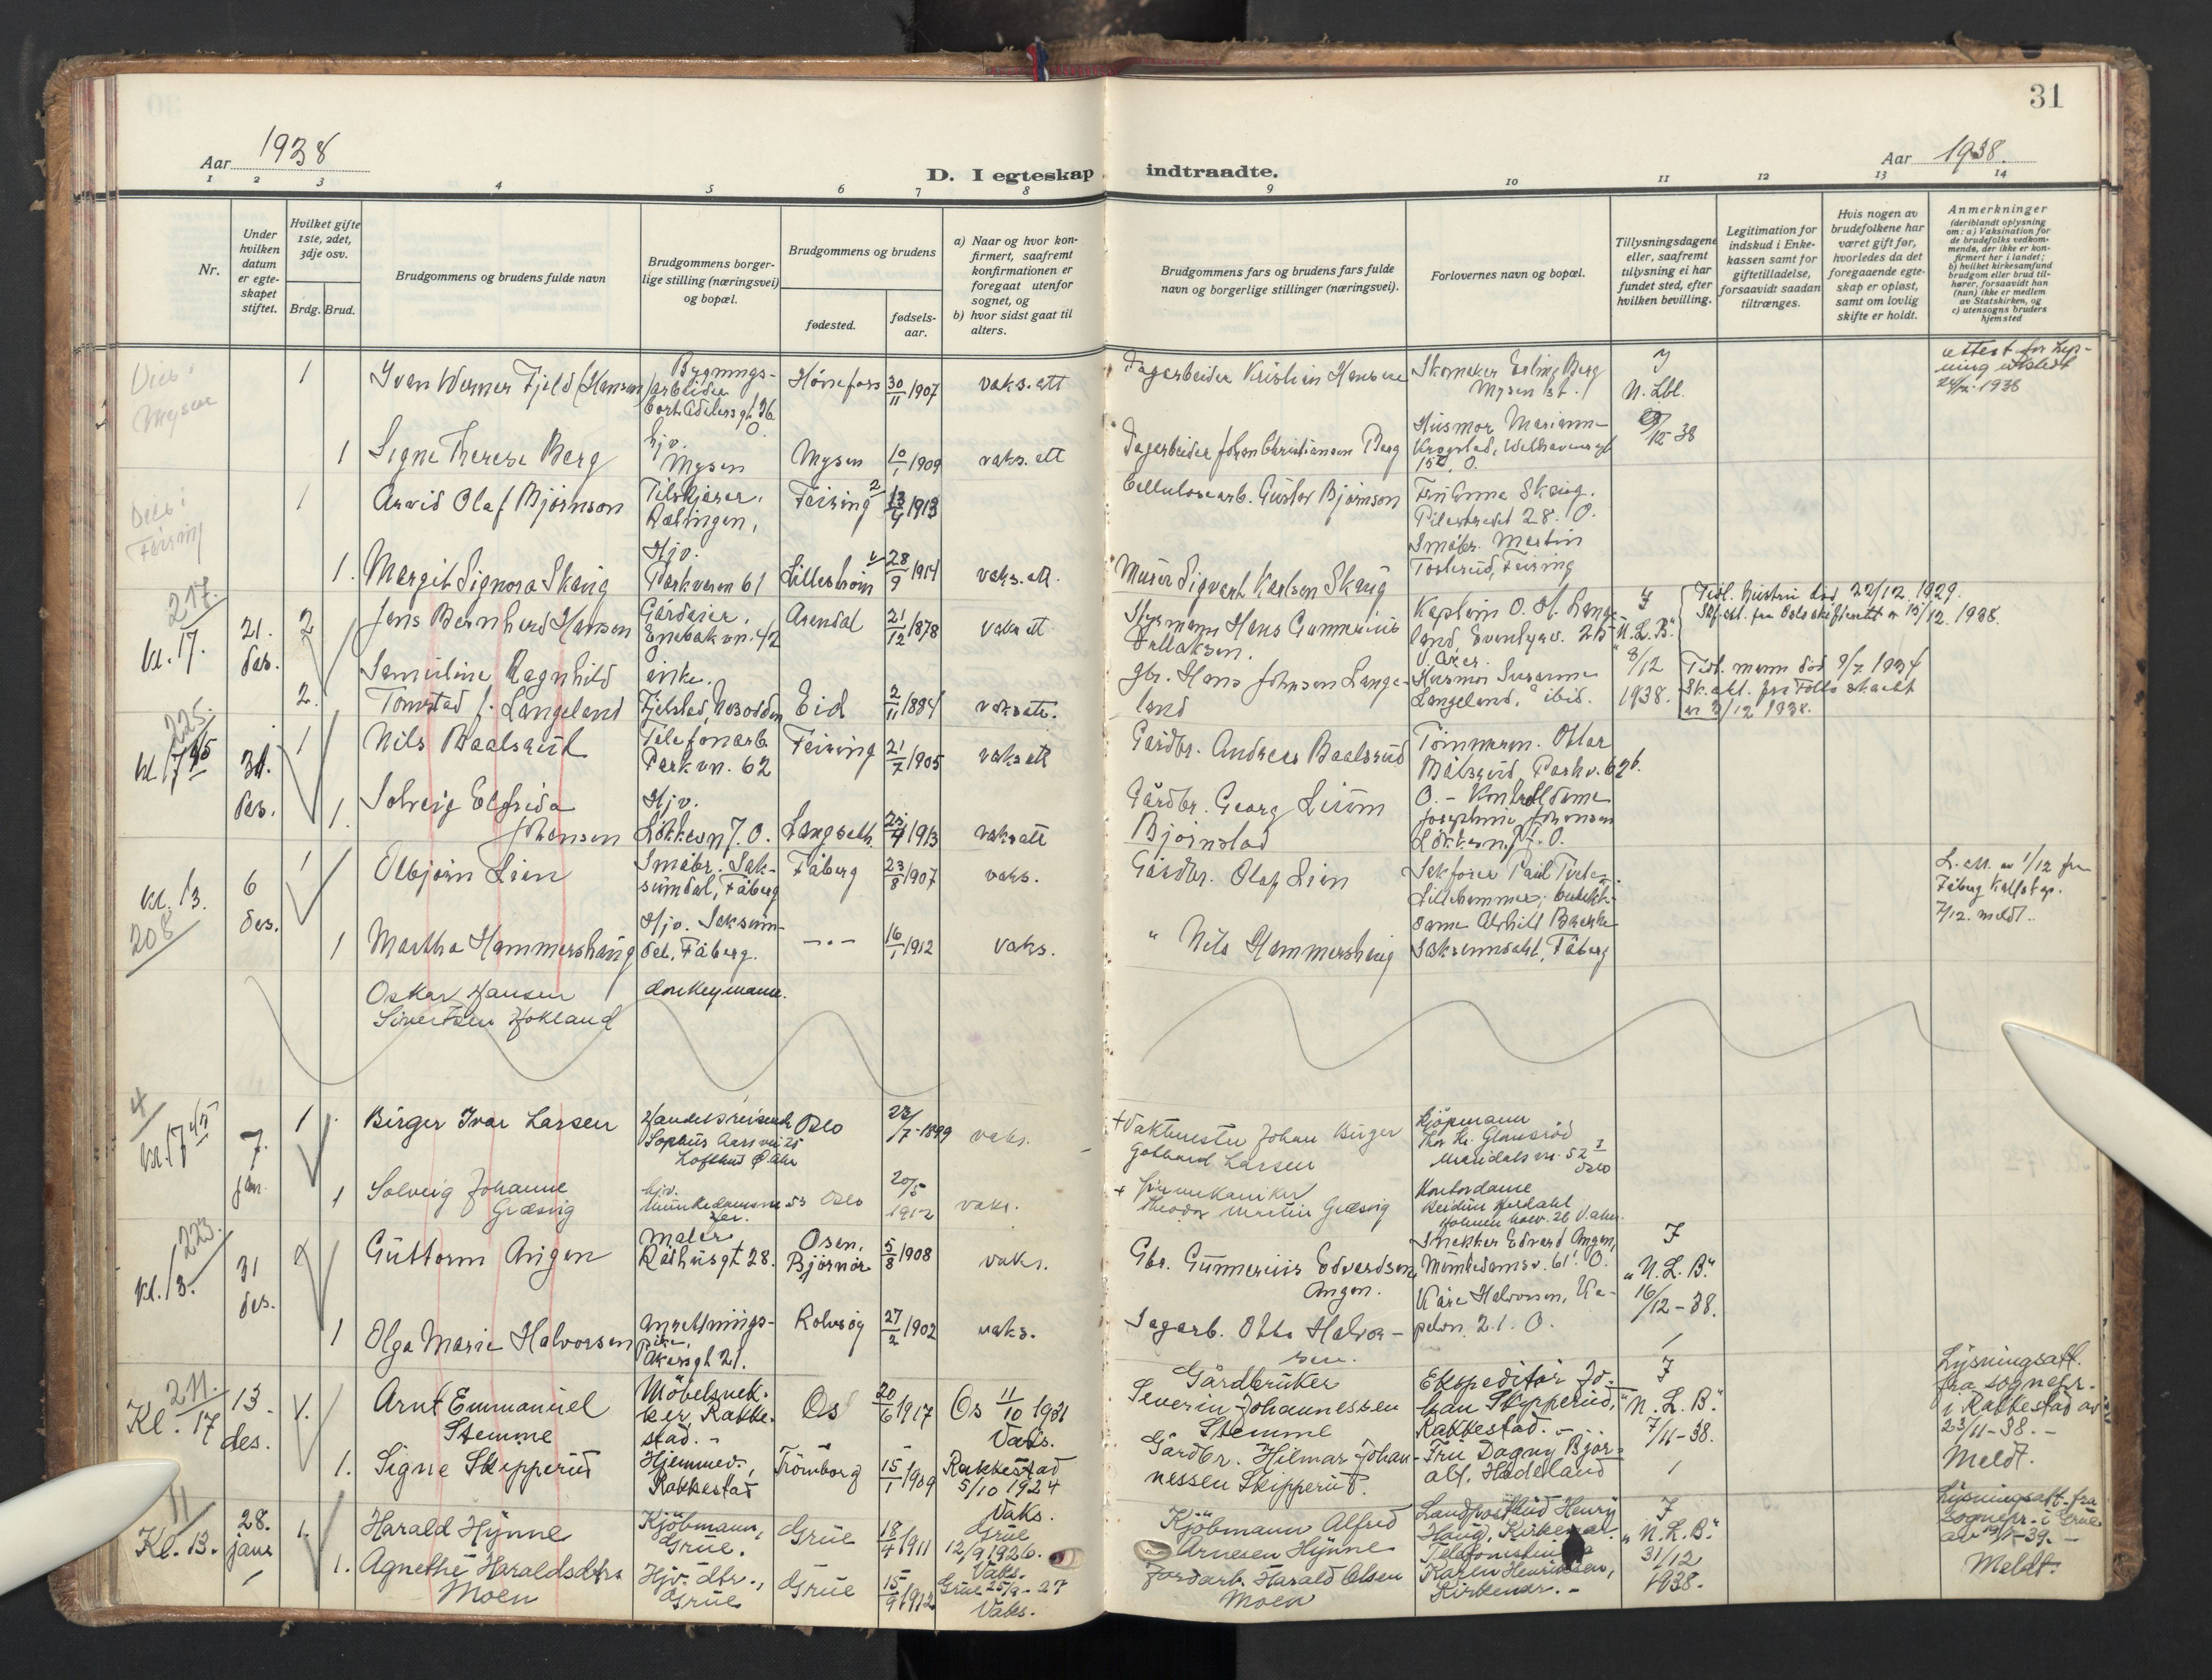 31
Aar 1938
D. I egteskap indtraadte.
Aar 1938.
1 2 3 4 5 6 7 8 9 10 11 12 13 14
Nr.
Under hvilken datum er egteskapet stiftet.
Hvilket gifte 1ste, 2det, 3dje osv.
Brdg. Brud.
Brudgommens og brudens fulde navn
Brudgommens borgerlige stilling (næringsvei) og bopæl.
Brudgommens og brudens
fødested.
fødselsaar.
a) Naar og hvor konfirmert, saafremt konfirmationen er foregaat utenfor sognet, og
b) hvor sidst gaat til alters.
Brudgommens fars og brudens fars fulde navn og borgerlige stillinger (næringsvei).
Forlovernes navn og bopæl.
Tillysningsdagene eller, saafremt tillysning ei har fundet sted, efter hvilken bevilling.
Legitimation for indskud i Enkekassen samt for giftetilladelse, forsaavidt saadan tiltrænges.
Hvis nogen av brudefolkene har været gift før, hvorledes da det foregaaende egteskap er opløst, samt om lovlig skifte er holdt.
Anmerkninger
(deriblandt oplysning om: a) Vaksination for de brudefolks vedkommende, der ikke er konfirmert her i landet; b) hvilket kirkesamfund brudgom eller brud tilhører, forsaavidt han (hun) ikke er medlem av Statskirken, og c) utensogns bruders hjemsted
Mysen
1 Ivan Werner Fjeld (Hansen) Bygningsarbeider Cort Adelersgt. 26 O. Hønefoss 30/11 1907 vaks. att
Kristian Hansen Skomaker Erling Berg Mysen st. N. Lbl.
attest for lysning utstedt 1938
1 Signe Therese Berg hjv. Mysen Mysen 10/1 1909 vaks. att
Johan Christiansen Berg Husmor Marianne Krogstad, Welhavensgt 15 O. 12 38
Feiring
1 Arvid Olaf Bjørnson Rælingen, Feiring 1913
Cellulosearb. Gustav Bjørnson Frk Anna Skaug. Pilestredet 28. O.
1. Margit Signora Skaug Hjv. Parkveien 61 Lillestrøm 28/9 1914 vaks. att.
Murer Sigvart Karlsen Skaug Småbr. Martin Tosterud, Feiring
217.
kl. 17. 21. des. 2 Jens Bernhard Hansen Gårdeier, Enebakvn. 42 Arendal 21/12 1878 vaks att
Styrmann Hans Gunnerius Kaptein O. H. Langeland, V. Aker. I "N.L.B." 8/12 1938.
Tidl. hustru død 22/12 1929. Sk. att. fra Oslo skifterett av 15/12 1938.
2. Samuline Ragnhild Tomstad f. Langeland enke. Fjelstad, Nesodden Eid 2/11 1884 vaks att.
gbr. Hans Johnsen Langeland Husmor Susanne Langeland, ibid.
Tidl. mann død 1934 Sk. att. fra Follo av 3/12 1938.
225.
kl 17 45 31. des. 1 Nils Baalsrud Telefonarb. Parkvn. 62 Feiring 21/7 1905 vaks att
Gårdbr. Andreas Baalsrud Tømmerm. Ottar Bålsrud, Parkv. 62 b. O.
1. Solveig Elfrida Johansen Hjv. Løkkevn 7. O. Langseth. 1913 vaks att
Gårdbr. Georg Bjørnstad Kontordame Josephine Johansen Løkkevn. 7. O.
kl. 13. 208 6 des. 1 Olbjørn Lien Småbr. Saksumdal, Fåberg Fåberg 23/8 1907 vaks.
Gårdbr. Olaf Lien Sakfører Paul Lillehammer;
L. att. av 1/12 fra Fåberg 7/12. meldt.
1 Martha Hammershaug Hjv. Saksumdal, Fåberg. -"- 16/1 1912 vaks.
" Nils Hammershaug Saksumdahl, Fåberg
Oskar Hansen donkeymann.
Sivertsen Hokland
4
kl. 17 45 7. jan. 1 Birger Ivar Larsen Handelsreisende Sophus Aars vei 25 Lofthus Ø. Aker Oslo 22/7-1899 vaks.
+ Vaktmester Johan Birger Gothard Larsen Kjøpmann Thor Kr. Maridalsvn. 52 I Oslo
1 Solveig Johanne Græsvig hjv. Munkedamsvn 53 Oslo 20/5 1912 vaks.
+ Theodor Martin Græsvig Kontordame V. aker.
223.
kl. 13. 31 des. Guttorm Angen Maler Rådhusgt 28. Osen, Bjørnør 5/8 1908 vaks.
Gbr. Gunnerius Edvardsen Angen. Snekker Edvard Angen, Munkedamsv. 61 I. O. I "N.L.B." 16/12-38.
1 Olga Marie Halvorsen anretningspike, Akersgt 21. Rolvsøy 27/2 1902 vaks.
Sagarb. Otto Halvorsen. Kåre Halvorsen, Kapelvn. 21. O.
211.
Kl. 17 13. des. 1. Arnt Emmanuel Stemme Møbelsnekker, Rakkestad. - Os 20/6 1917 Os 11/10 1931 Vaks.
Gårdbruker Severin Johannessen Stemme Ekspeditør Johan Skipperud, Rakkestad. - I "N.L.B." 7/11-38.
Lysningsatt. fra sognepr. i Rakkestad av 23/11-38. - Meldt.
1. Signe Skipperud Hjemmev., Rakkestad Trømborg 15/1 1909 Rakkestad 5/10 1924 Vaks.
Gårdbr. Hilmar Johannessen Skipperud. Fru Dagny Hadeland
11
Kl. 13. 28. jan. 1. Harald Hynne Kjøbmann, Grue. Grue 18/4 1911 Grue 12/9 1926. Vaks.
Kjøbmann Alfred Arnesen Hynne Landpostbud Henry Haug, Kirkenær. I "N.L.B." 31/12 1938.
Lysningsatt. fra sognepr. i Grue av 39. - Meldt.
1. Agnethe Haraldsdtr. Moen Hjv. dtr., Grue Grue 15/9 1912 Grue 25/9-27 Vaks.
Jordarb. Harald Olsen Moen Karen Henriksen, Kirkenær. -